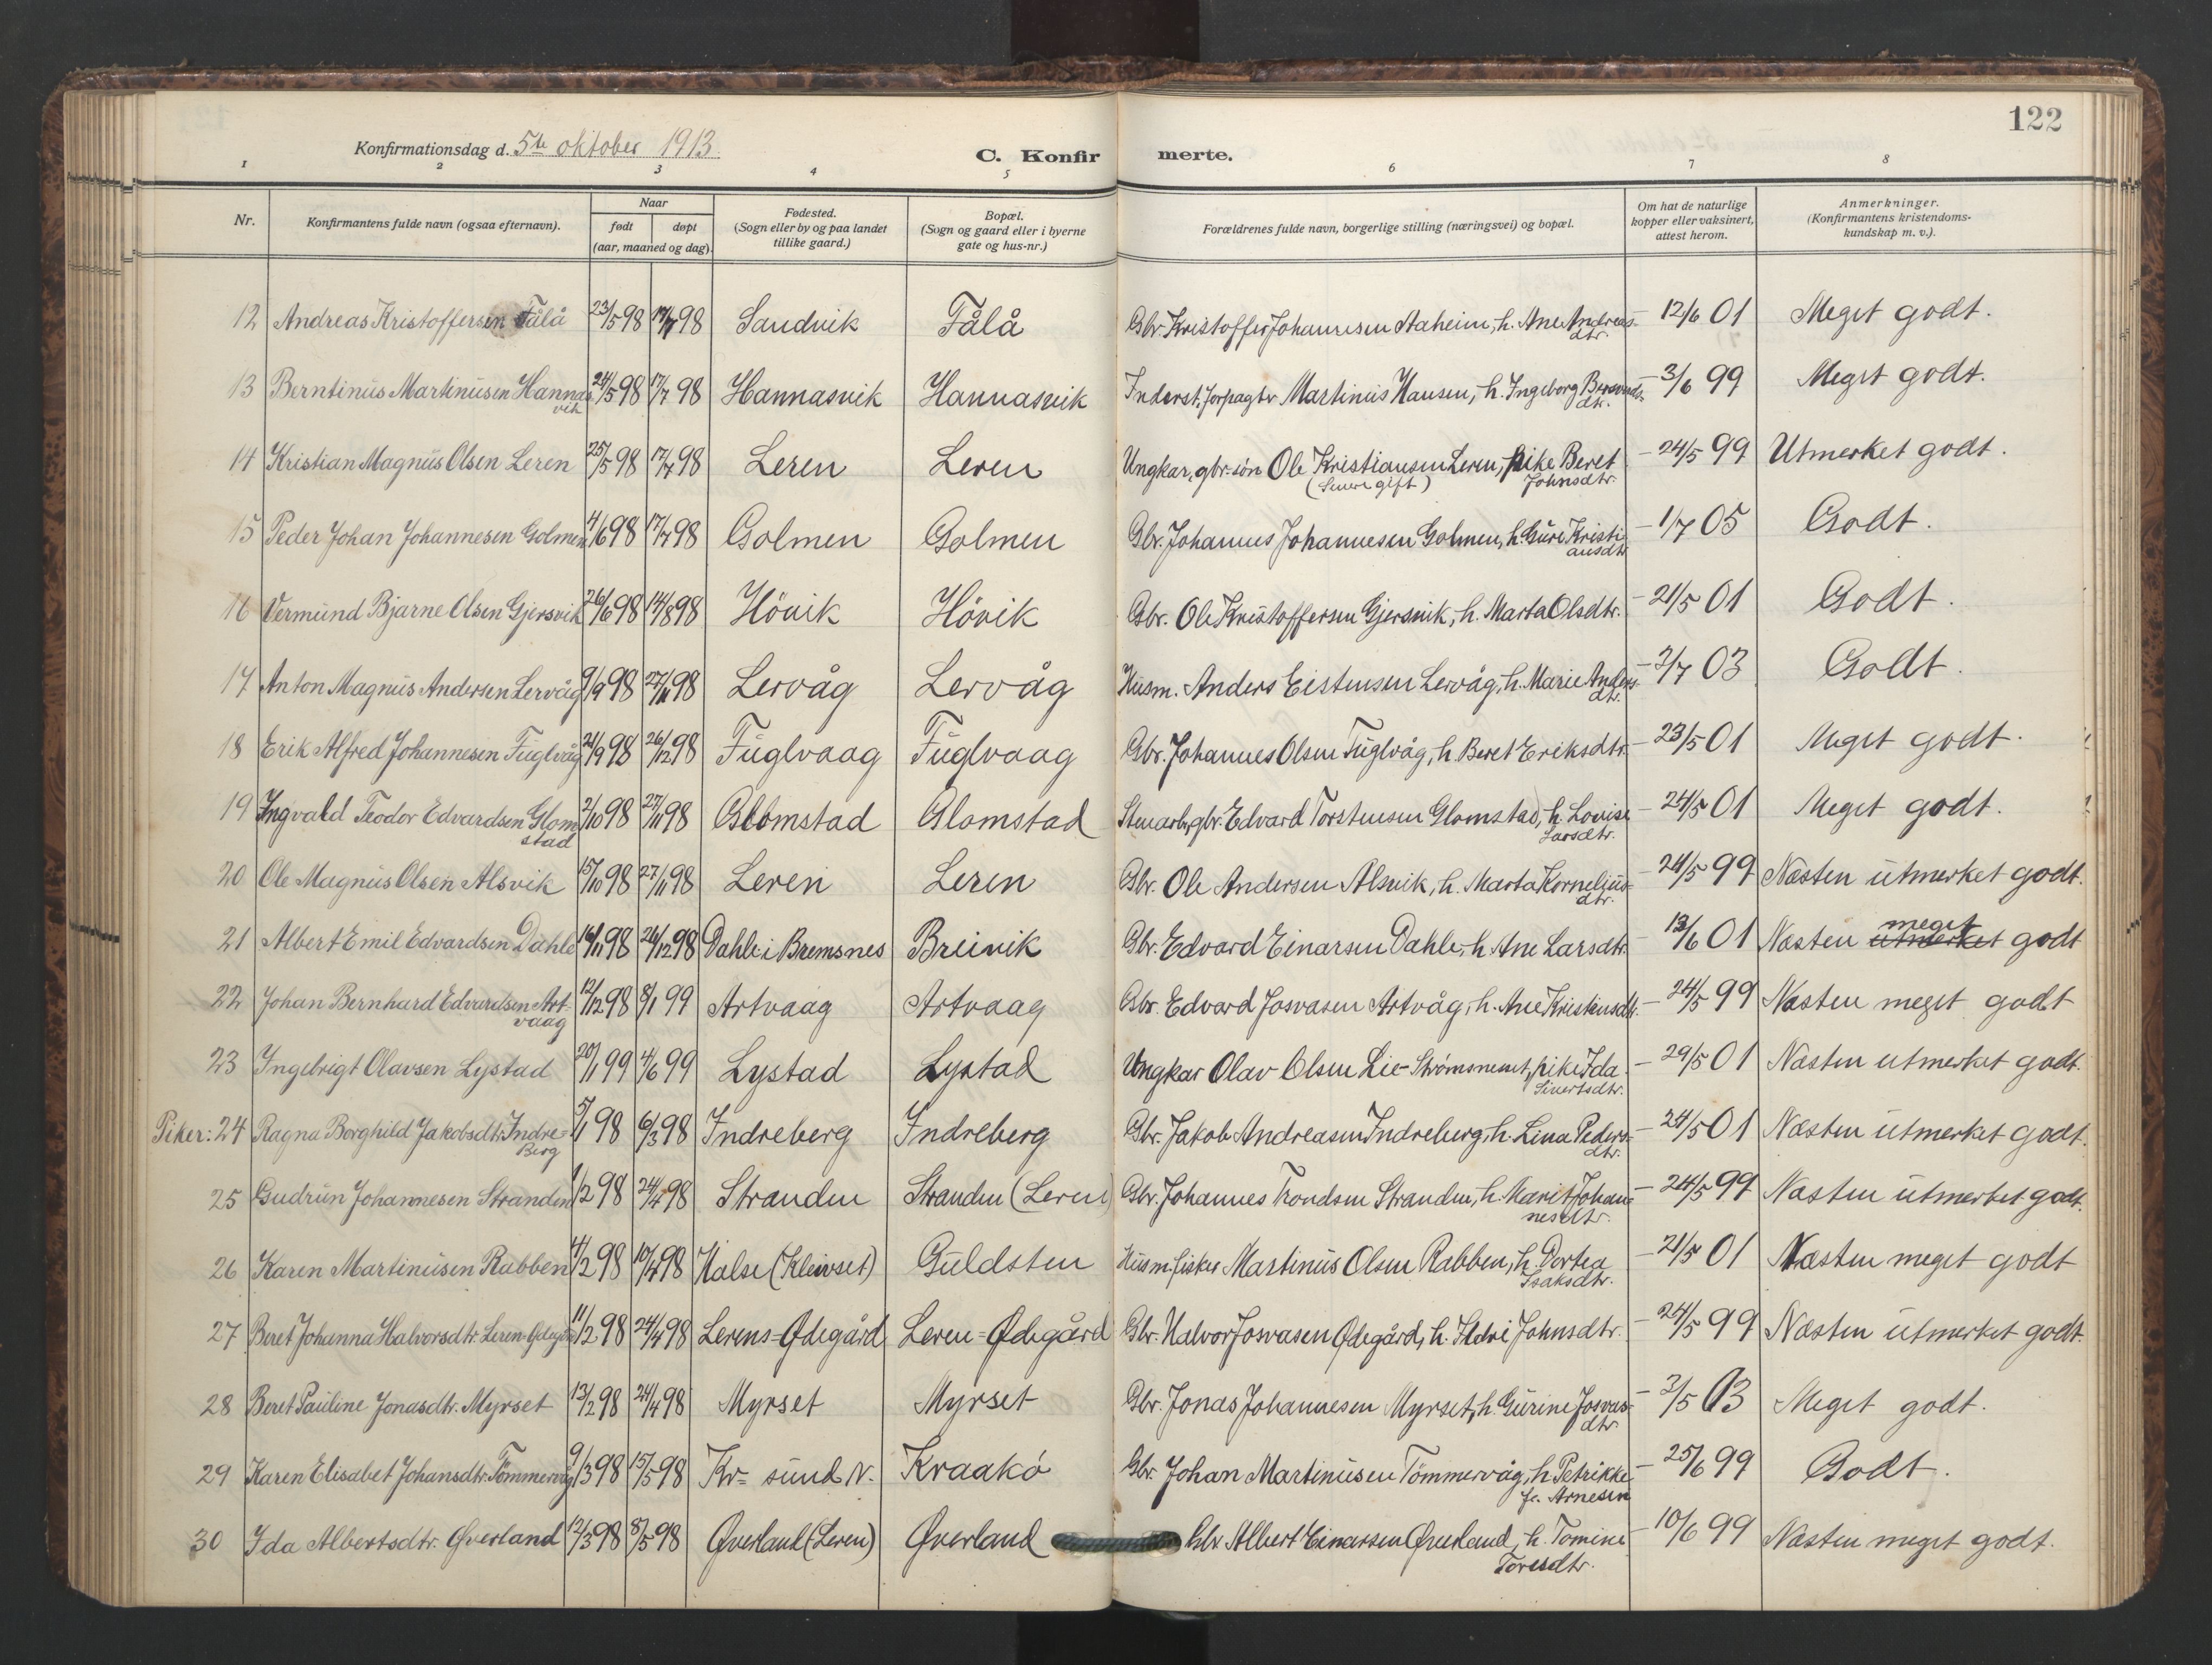 122
Konfirmationsdag d. 5te oktober 1913.
C. Konfirmerte.
1 2 3 4 5 6 7 8
Nr.
Konfirmantens fulde navn (ogsaa efternavn).
Naar
født døpt
(aar, maaned og dag).
Fødested.
(Sogn eller by og paa landet
tillike gaard.)
Bopæl.
(Sogn og gaard eller i byerne
gate og hus-nr.)
Forældrenes fulde navn, borgerlige stilling (næringsvei) og bopæl.
Om hat de naturlige
kopper eller vaksinert,
attest herom.
Anmerkninger.
(Konfirmantens kristendoms-
kundskap m. v.).
12 Andreas Kristoffersen Tålå 23/5 98 17/7 98 Sandvik Tålå Gbr. Kristoffer Johannesen Aaheim, h. Ane Andreas- — 12/6 01 Meget godt.
dtr.
13 Berntinus Martinusen Hannas 24/5 98 17/7 98 Hannasvik Hannasvik Inderst, forpagter Martinus Hansen, h. Ingeborg — 3/6 99 Meget godt.
vik dtr.
14 Kristian Magnus Olsen Leren 25/5 98 17/7 98 Leren Leren Ungkar, gbr.søn Ole Kristiansen Leren, pike Beret — 24/5 99 Utmerket godt.
(Senere gift) Johnsdtr.
15 Peder Johan Johannesen Golmen 4/6 98 17/7 98 Golmen Golmen Gbr. Johannes Johannesen Golmen, h. Guri Kristi — 1/7 05 Godt.
ansdtr
16 Vermund Bjarne Olsen Gjersvik 26/6 98 14/8 98 Hövik Hövik Gbr. Ole Kristoffersen Gjersvik, h. Marta Olsdtr. — 21/5 01 Godt.
17 Anton Magnus Andersen Lervåg 9/9 98 27/11 98 Lervåg Lervåg Husm. Anders Eistensen Lervåg, h. Marie Anders- — 2/7 03 Godt.
dtr.
18 Erik Alfred Johannesen Fuglvåg 21/9 98 26/12 98 Fuglvaag Fuglvaag Gbr. Johannes Olsen Fuglvåg, h. Beret Eriksdtr. — 23/5 01 Meget godt.
19 Ingvald Teodor Edvardsen Glom 2/10 98 27/11 98 Glomstad Glomstad Stenarb, gbr. Edvard Torstensen Glomstad, h. Lovise — 24/5 01 Meget godt.
stad Larsdtr.
20 Ole Magnus Olsen Alsvik 15/10 98 27/11 98 Leren Leren Gbr. Ole Andersen Alsvik, h. Marta Kornelius- — 24/5 99 Næsten utmerket godt.
dtr.
21 Albert Emil Edvardsen Dahle 16/11 98 26/12 98 Dahle i Bremsnes Breivik Gbr. Edvard Einarsen Dahle, h. Ane Larsdtr. — 13/6 01 Næsten utmerket meget godt
22 Johan Bernhard Edvardsen Art- 12/12 98 8/1 99 Artvaag Artvaag Gbr. Edvard Josvasen Artvåg, h. Ane Kristensdtr. — 24/5 99 Næsten meget godt
vaag
23 Ingebrigt Olavsen Lystad 20/1 99 4/6 99 Lystad Lystad Ungkar Olav Olsen Lie- Strömsneset, pike Ida — 29/5 01 Næsten utmerket godt.
Sivertsdtr.
Piker: 24 Ragna Borghild Jakobsdtr. Indre- 5/1 98 6/3 98 Indreberg Indreberg Gbr. Jakob Andreasen Indreberg, h. Lina Peders- — 24/5 01 Næsten utmerket godt.
berg dtr.
25 Gudrun Johannesen Stranden 1/2 98 24/4 98 Stranden Stranden (Leren) Gbr. Johannes Trondsen Stranden, h. Marit Johan- — 24/5 99 Næsten utmerket godt.
nesdtr.
26 Karen Martinusen Rabben 4/2 98 10/4 98 Halse (Kleivset) Guldsten Husm. fisker Martinus Olsen Rabben, h. Dortea — 21/5 01 Næsten meget godt
Isaksdtr.
27 Beret Johanna Halvorsdtr. Leren-Ødegård 11/2 98 24/4 98 Lerens-Ødegård Leren-Ødegård Gbr. Halvor Josvasen Ødegård, h. Ildri Johnsdtr. — 24/5 99 Næsten utmerket godt.
28 Beret Pauline Jonasdtr. Myrset 13/2 98 24/4 98 Myrset Myrset Gbr. Jonas Johannesen Myrset, h. Gurine Josvas- — 3/5 03 Meget godt.
dtr.
29 Karen Elisabet Johansdtr. Tömmervåg 9/3 98 15/5 98 Kr. sund N. Kraakö Gbr. Johan Martinusen Tömmervåg, h. Petrikke — 25/6 99 Godt.
f. Arnesen
30 Ida Albertsdtr. Øverland 12/3 98 8/5 98 Øverland (Leren) Øverland Gbr. Albert Einarsen Øverland, h. Tomine — 10/6 99 Næsten meget godt.
Toresdtr.